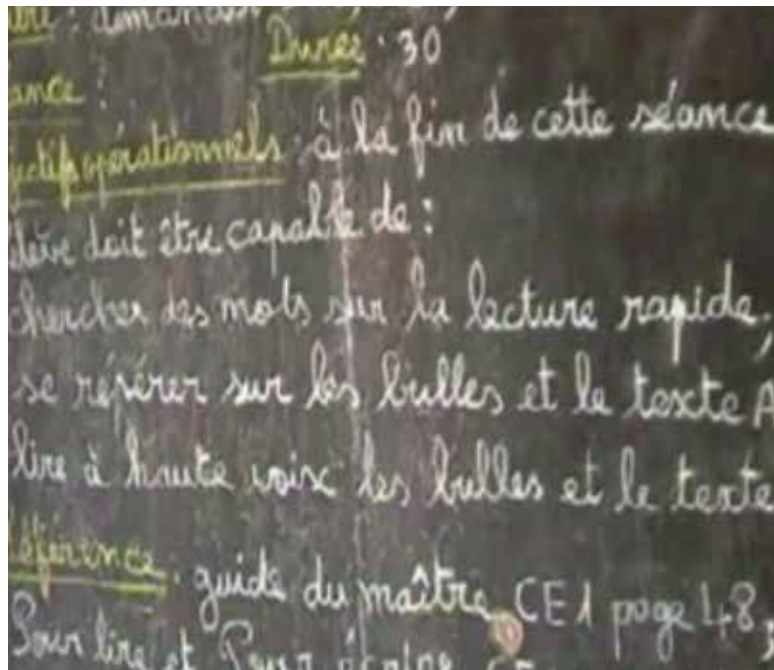 tre : demander
Durée : 30
ance :
jectifs opérationnels : à la fin de cette séance
élève doit être capable de :
chercher des mots sur la lecture rapide ;
se répérer sur les bulles et le texte A
lire à haute voix les bulles et le texte
Référence : guide du maître CE1 page 48,
Pour lire et Pour écrire